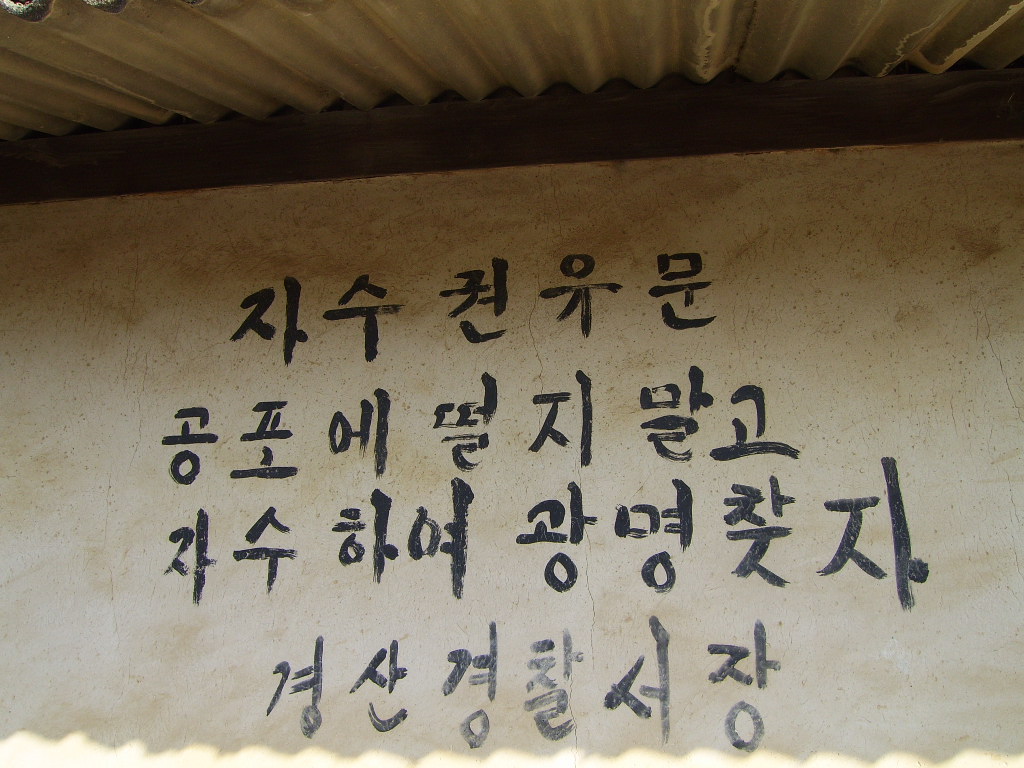 자수 권유문
공포에 떨지 말고
자수하여 광명찾자
경산 경찰서장